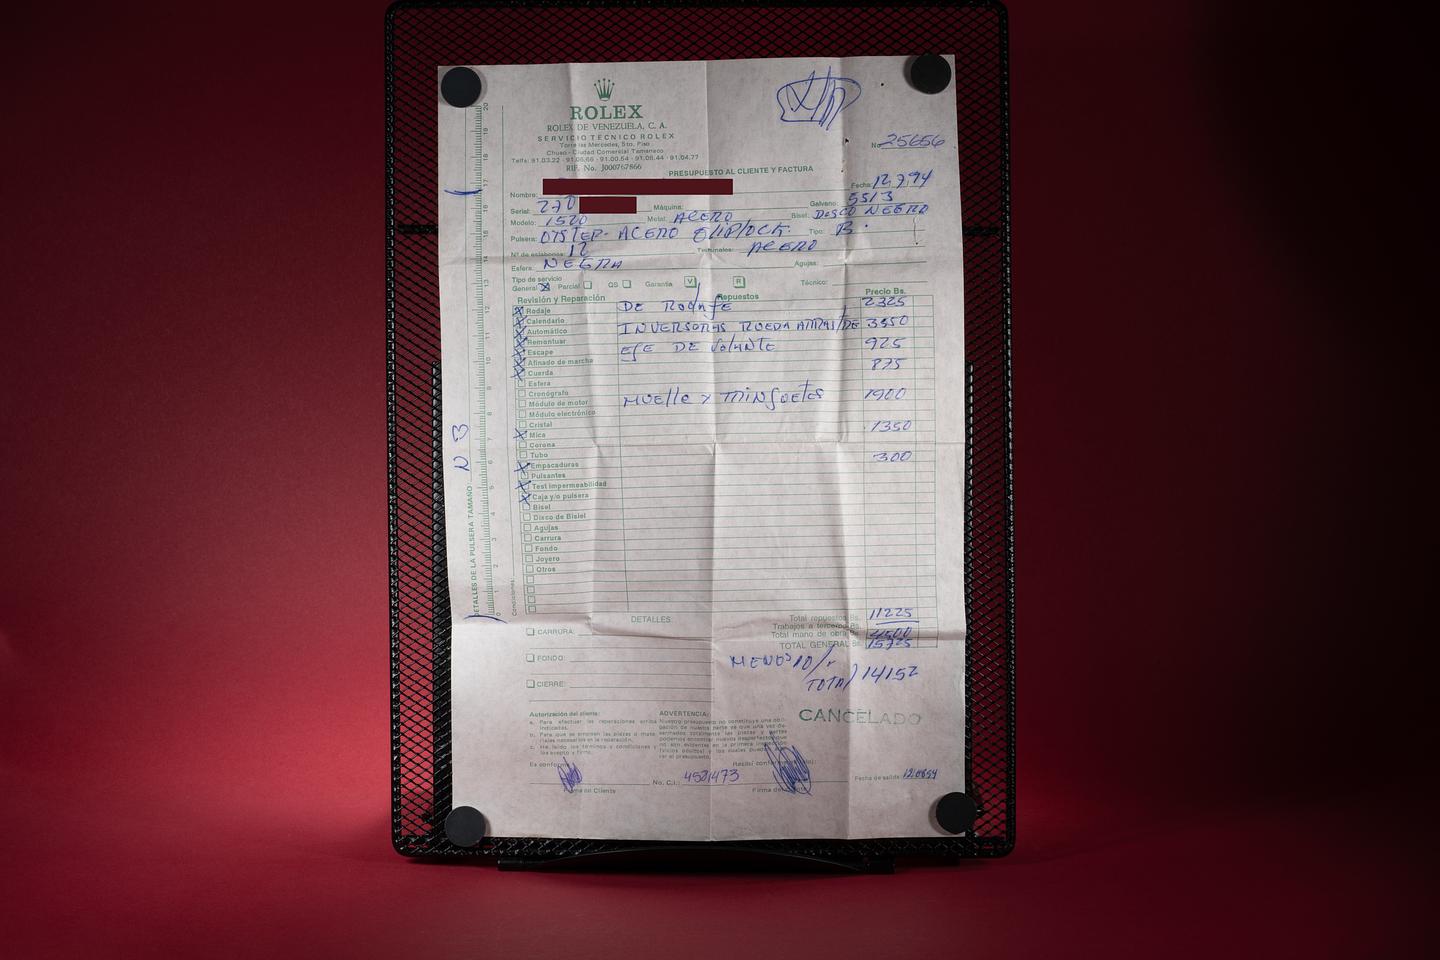 ROLEX
ROLEX DE VENEZUELA, C. A.
SERVICIO TECNICO ROLEX
Torre las Mercedes, 5to. Piso
Chuao - Ciudad Comercial Tamanaco
Telfs: 91.03.22 - 91.06.66 - 91.00.54 - 91.06.44 - 91.04.77
RIF. No. J000767866
No 25656
PRESUPUESTO AL CLIENTE Y FACTURA
Nombre: Fecha: 12,7,94
Serial: 270 Máquina: Galvano: 5513
Modelo: 1520 Metal: ACERO Bisel: DISCO NEGRO
Pulsera: OYSTER-ACERO Tipo: B.
Nº de eslabones: 12 Terminales: ACERO
Esfera: NEGRA Agujas:
Tipo de servicio
General X Parcial QS Garantía V R Técnico:
Revisión y Reparación Repuestos Precio Bs.
X Rodaje DE Rodaje 2325
X Calendario
X Automático INVERSORAS RUEDA ARRASTRE 3550
X Remontuar
X Escape EJE DE VOLANTE 925
X Afinado de marcha
X Cuerda 875
Esfera
Cronógrafo
Módulo de motor MUELLE Y TRINQUETES 1900
Módulo electrónico
Cristal
X Mica 1350
Corona
Tubo
X Empacaduras 300
Pulsantes
X Test impermeabilidad
X Caja y/o pulsera
Bisel
Disco de Bisiel
Agujas
Carrura
Fondo
Joyero
Otros
DETALLES DE LA PULSERA TAMAÑO N 3
0 1 2 3 4 5 6 7 8 9 10 11 12 13 14 15 16 17 18 19 20
Condiciones:
DETALLES:
Total repuestos Bs. 11225
Trabajos a terceros Bs.
Total mano de obra Bs. 4500
TOTAL GENERAL Bs. 15725
CARRURA:
FONDO:
CIERRE:
MENOS 10/.
TOTAL 14152
CANCELADO
Autorización del cliente:
a. Para efectuar las reparaciones arriba indicadas.
b. Para que se empleen las piezas o materiales necesarios en la reparación.
c. He leído los términos y condiciones y los acepto y firmo.
ADVERTENCIA:
Nuestro presupuesto no constituye una obligación de nuestra parte ya que una vez desarmadas totalmente las piezas y partes podemos encontrar nuevos desperfectos que no son evidentes en la primera inspección (vicios ocultos) y los cuales pueden variar el presupuesto.
Es conforme
Recibí conforme
No. C.I.: 4521473
Fecha de salida
Firma del Cliente
Firma del